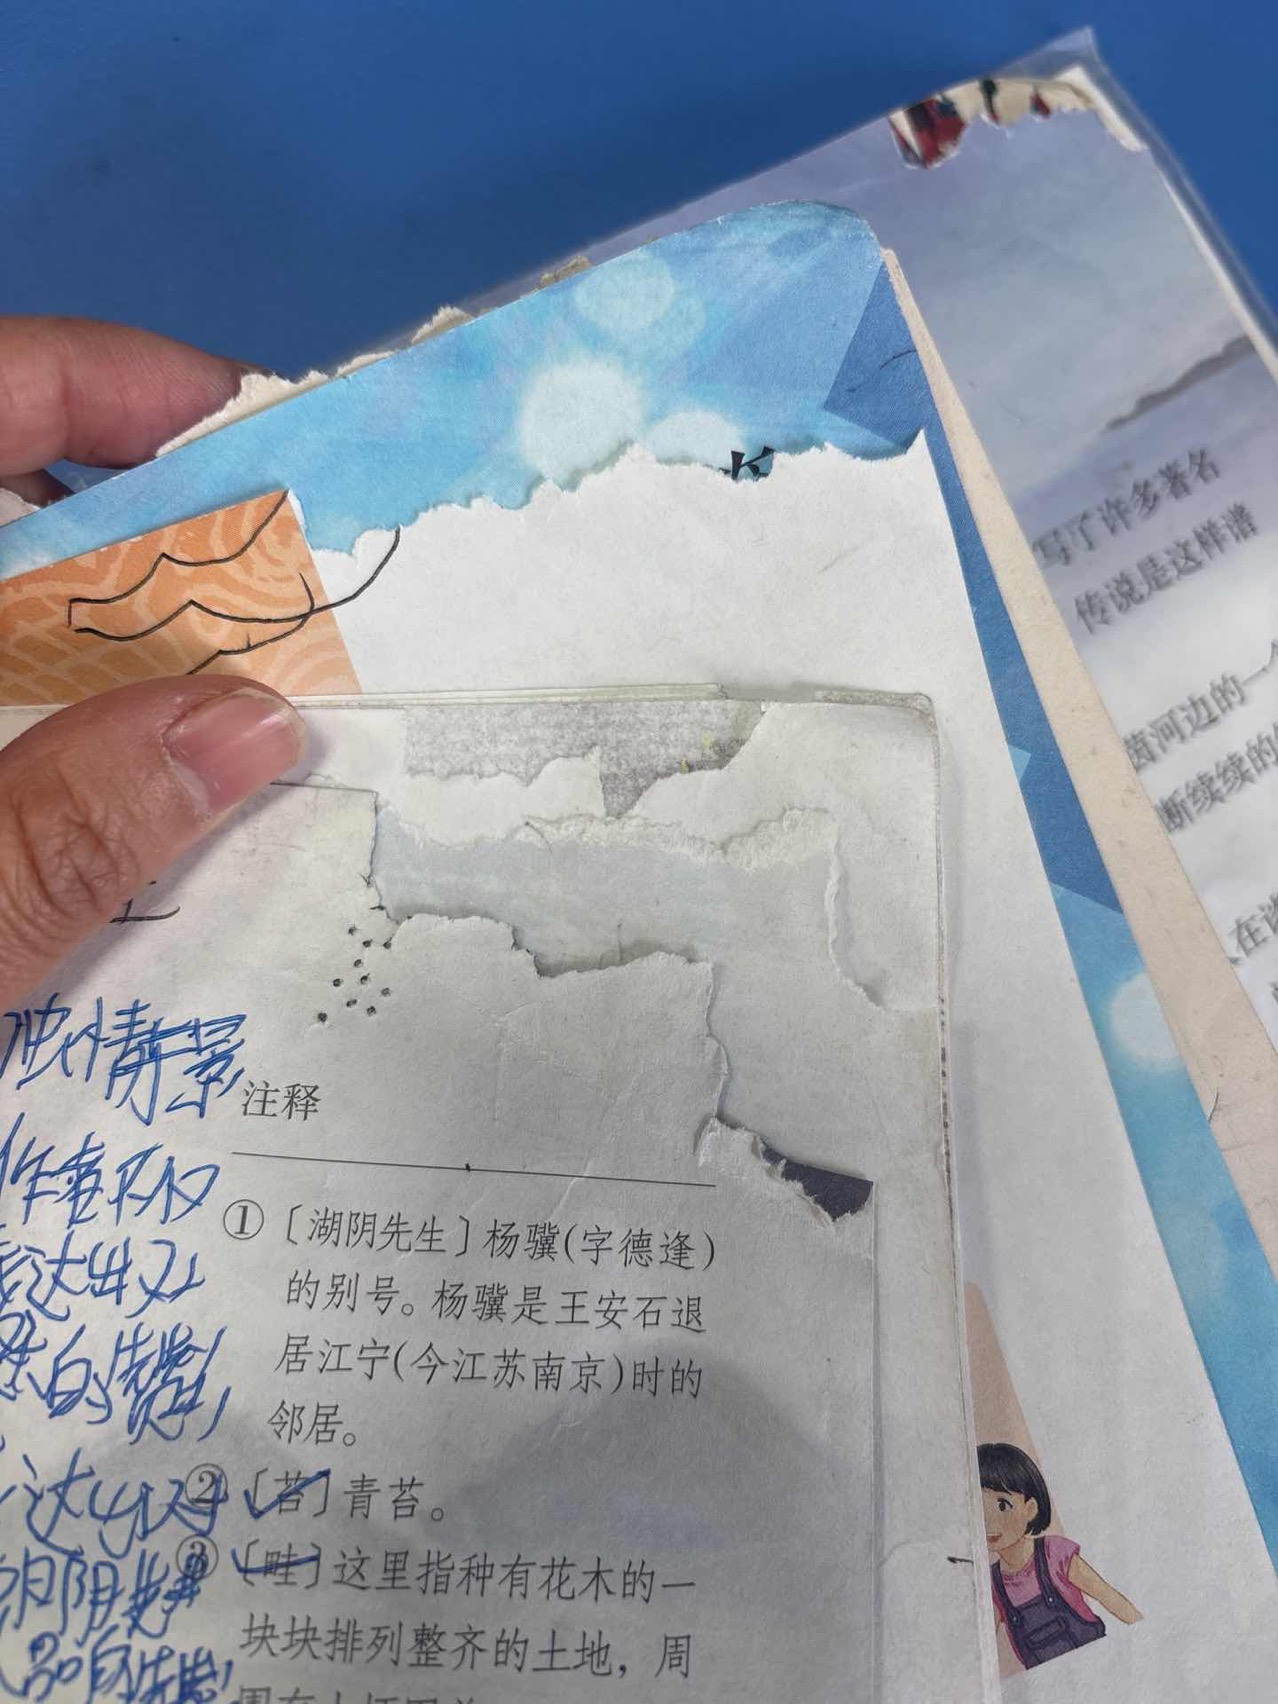 写了许多著名
传说是这样谱
黄河边的一个
断续续的
在谱
独情景
注释
①〔湖阴先生〕杨骥(字德逢)
的别号。杨骥是王安石退
居江宁(今江苏南京)时的
邻居。
②〔苔〕青苔。
③〔畦〕这里指种有花木的一
块块排列整齐的土地，周
作者不仅
表达出对
景的赞
达出对
湖阴先生
人品的赞